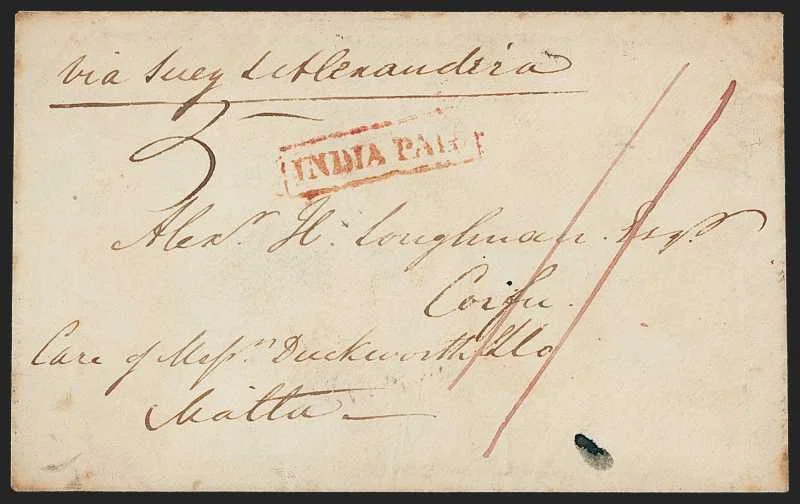 Via Suez & Alexanderia
5
INDIA PAID
Alexr. H. Loughnan Esqre
Corfu.
Care of Messrs Duckworth & Co
Malta